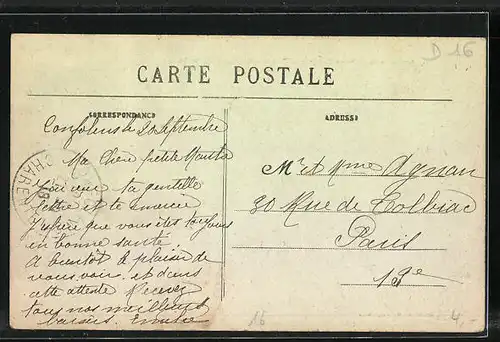 D 16
CARTE POSTALE
CORRESPONDANCE
ADRESSE
Confolens le 20 Septembre
Ma Chère petite
J'ai reçu ta gentille
lettre et te remercie
J'espère que vous êtes toujours
en bonne santé
A bientôt le plaisir de
vous voir et dans
cette attente Recevez
tous nos meilleurs
baisers
Mr et Mme Agnan
30 Rue de Tolbiac
Paris
13e
16
4,-